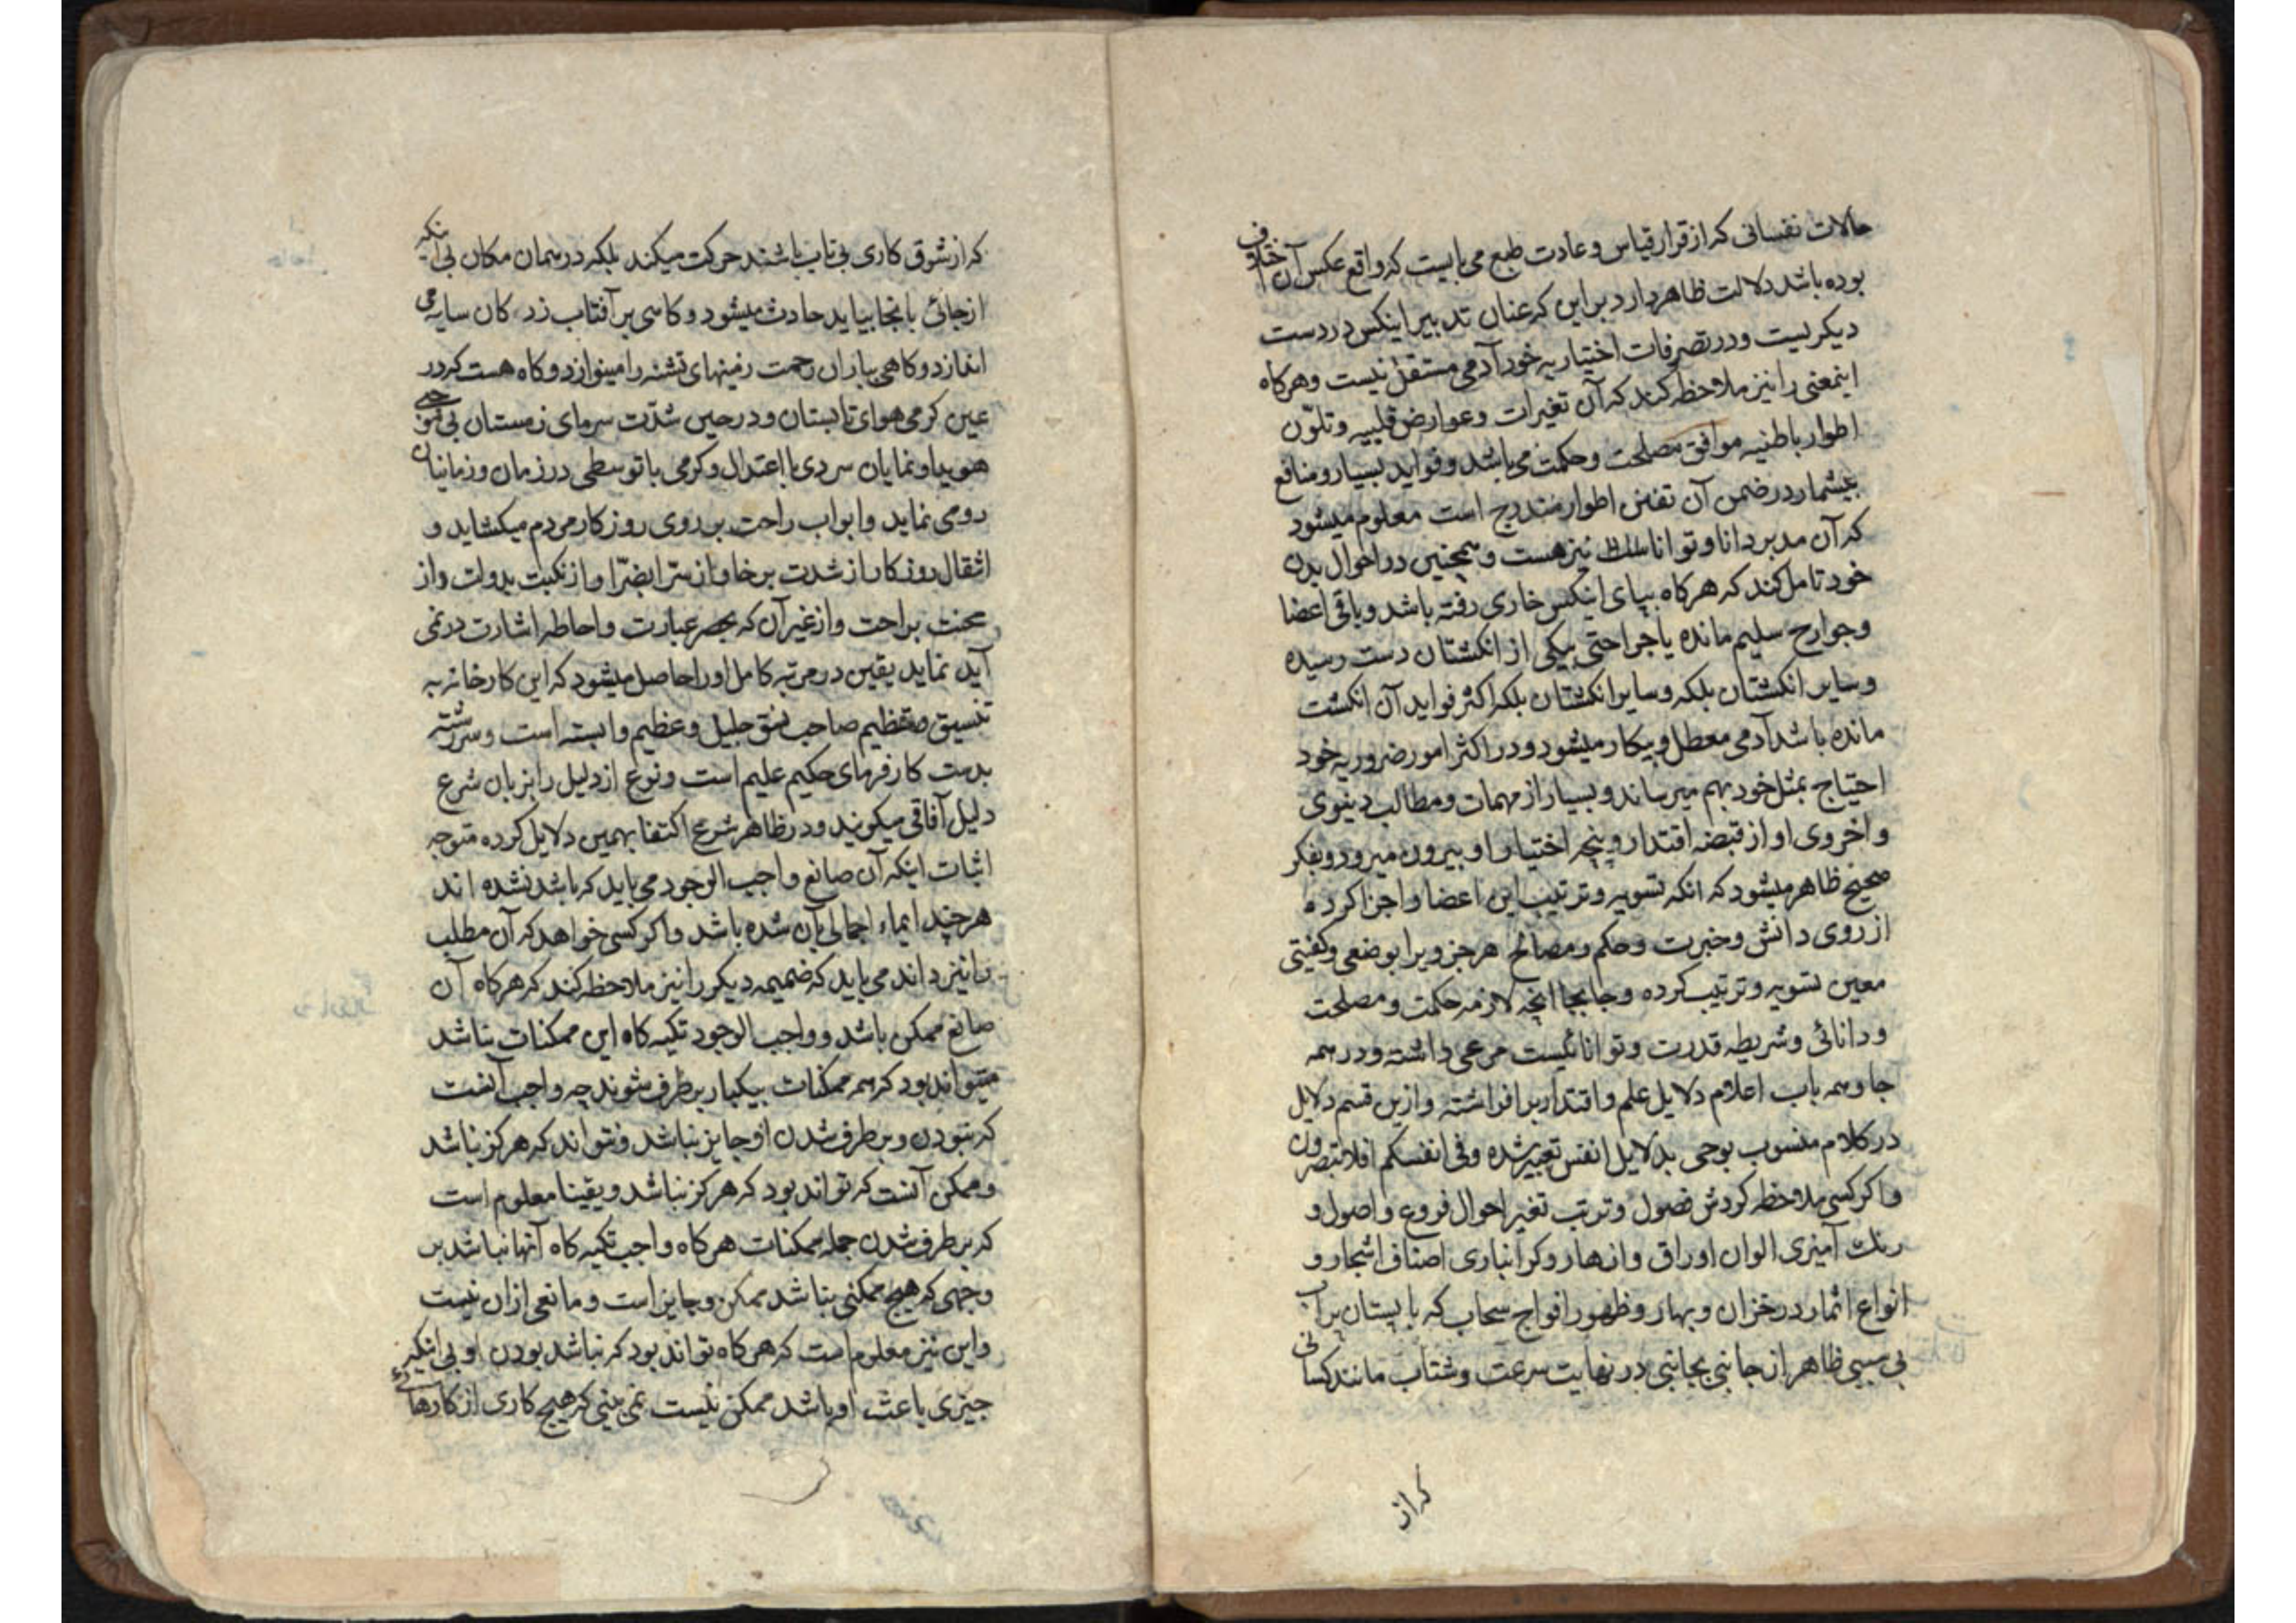 حالات نفسانی که از قرار قیاس و عادت طبع می بایست که واقع عکس آن
بوده باشد دلالت ظاهر دارد بر این که عنان تدبیر اینکس در دست
دیکریست و در تصرفات اختیاریه خود آدمی مستقل نیست و هرکاه
اینمعنی را نیز ملاحظه کند که آن تغیرات و عوارض قلبیه و تلوّن
اطوار باطنیه موافق مصلحت و حکمت می باشد و فواید بسیار و منافع
بیشمار در ضمن آن تفنن اطوار مندرج است معلوم میشود
که آن مدبر دانا و توانا نیز هست و همچنین در احوال بدن
خود تامل کند که هرکاه بپای اینکس خاری رفته باشد و باقی اعضا
و جوارح سلیم مانده یا جراحتی بیکی از انکشتان دست رسیده
و سایر انکشتان بلکه و سایر انکشتان بلکه اکثر فواید آن انکشت
مانده باشد آدمی معطل و بیکار میشود و در اکثر امور ضروریه خود
احتیاج بمثل خود بهم میرساند و بسیار از مهمات و مطالب دنیوی
و اخروی او از قبضه اقتدار و پنجه اختیار او بیرون میرود و بفکر
صحیح ظاهر میشود که انکه تسویه و ترتیب این اعضا و اجزا کرده
از روی دانش و خبرت و حکم و مصالح هر جزویرا بوضعی و کیفیتی
معین تسویه و ترتیب کرده و جابجا انچه لازمه حکمت و مصلحت
و دانائی و شریطه قدرت و توانائیست مرعی داشته و در همه
جا و همه باب اعلام دلایل علم و اقتدار بر افراشته و ازین قسم دلایل
در کلام منسوب بوحی بدلایل انفس تعبیر شده و فی انفسکم افلا تبصرون
و اکر کسی ملاحظه کردش فصول و ترتب تغیر احوال فروع و اصول و
رنک آمیزی الوان اوراق و ازهار و کرانباری اصناف اشجار و
انواع اثمار در خزان و بهار و ظهور افواج سحاب که با پستان پر آب
بی سببی ظاهر از جانبی بجانبی در نهایت سرعت و شتاب مانند کسانی
که از
که از شوق کاری بی تاب باشند حرکت میکند بلکه در همان مکان بی انکه
از جائی بانجا بیاید حادث میشود و کاهی بر آفتاب زد کان سایه می
اندازد و کاهی بباران رحمت زمینهای تشنه را مینوازد و کاه هست که در
عین کرمی هوای تابستان و در حین شدّت سرمای زمستان بی
هویدا و نمایان سردی با اعتدال و کرمی با توسطی در زمان و زمانیان
رو می نماید و ابواب راحت بر روی روزکار مردم میکشاید و
انتقال روزکار از شدت برخا و از سرّا بضرّا و از نکبت بدولت و از
محنت براحت و از غیر آن که بحصر عبارت و احاطه اشارت در نمی
آید نماید یقین در مرتبه کامل او را حاصل میشود که این کارخانه به
تنسیق و تنظیم صاحب نسق جلیل و عظیم وابسته است و سررشته
بدست کارفرمای حکیم علیم است و نوع از دلیل را بزبان شرع
دلیل آفاقی میکویند و در ظاهر شرع اکتفا بهمین دلایل کرده متوجه
اثبات اینکه آن صانع واجب الوجود می باید که باشد نشده اند
هرچند ایماء اجمالی بآن شده باشد و اکر کسی خواهد که آن مطلب
را نیز داند می باید که ضمیمه دیکر را نیز ملاحظه کند که هرکاه آن
صانع ممکن باشد و واجب الوجود تکیه کاه این ممکنات نباشد
میتواند بود که همه ممکنات بیکبار برطرف شوند چه واجب آنست
که نبودن و برطرف شدن او جایز نباشد و نتواند که هرکز نباشد
و ممکن آنست که تواند بود که هرکز نباشد و یقینا معلوم است
که برطرف شدن جمله ممکنات هرکاه واجب تکیه کاه آنها نباشد بر
وجهی که هیچ ممکنی نباشد ممکن و جایز است و مانعی ازان نیست
و این نیز معلوم است که هرکاه تواند بود که نباشد بودن او بی انکه
چیزی باعث او باشد ممکن نیست نمی بینی که هیچ کاری از کارها